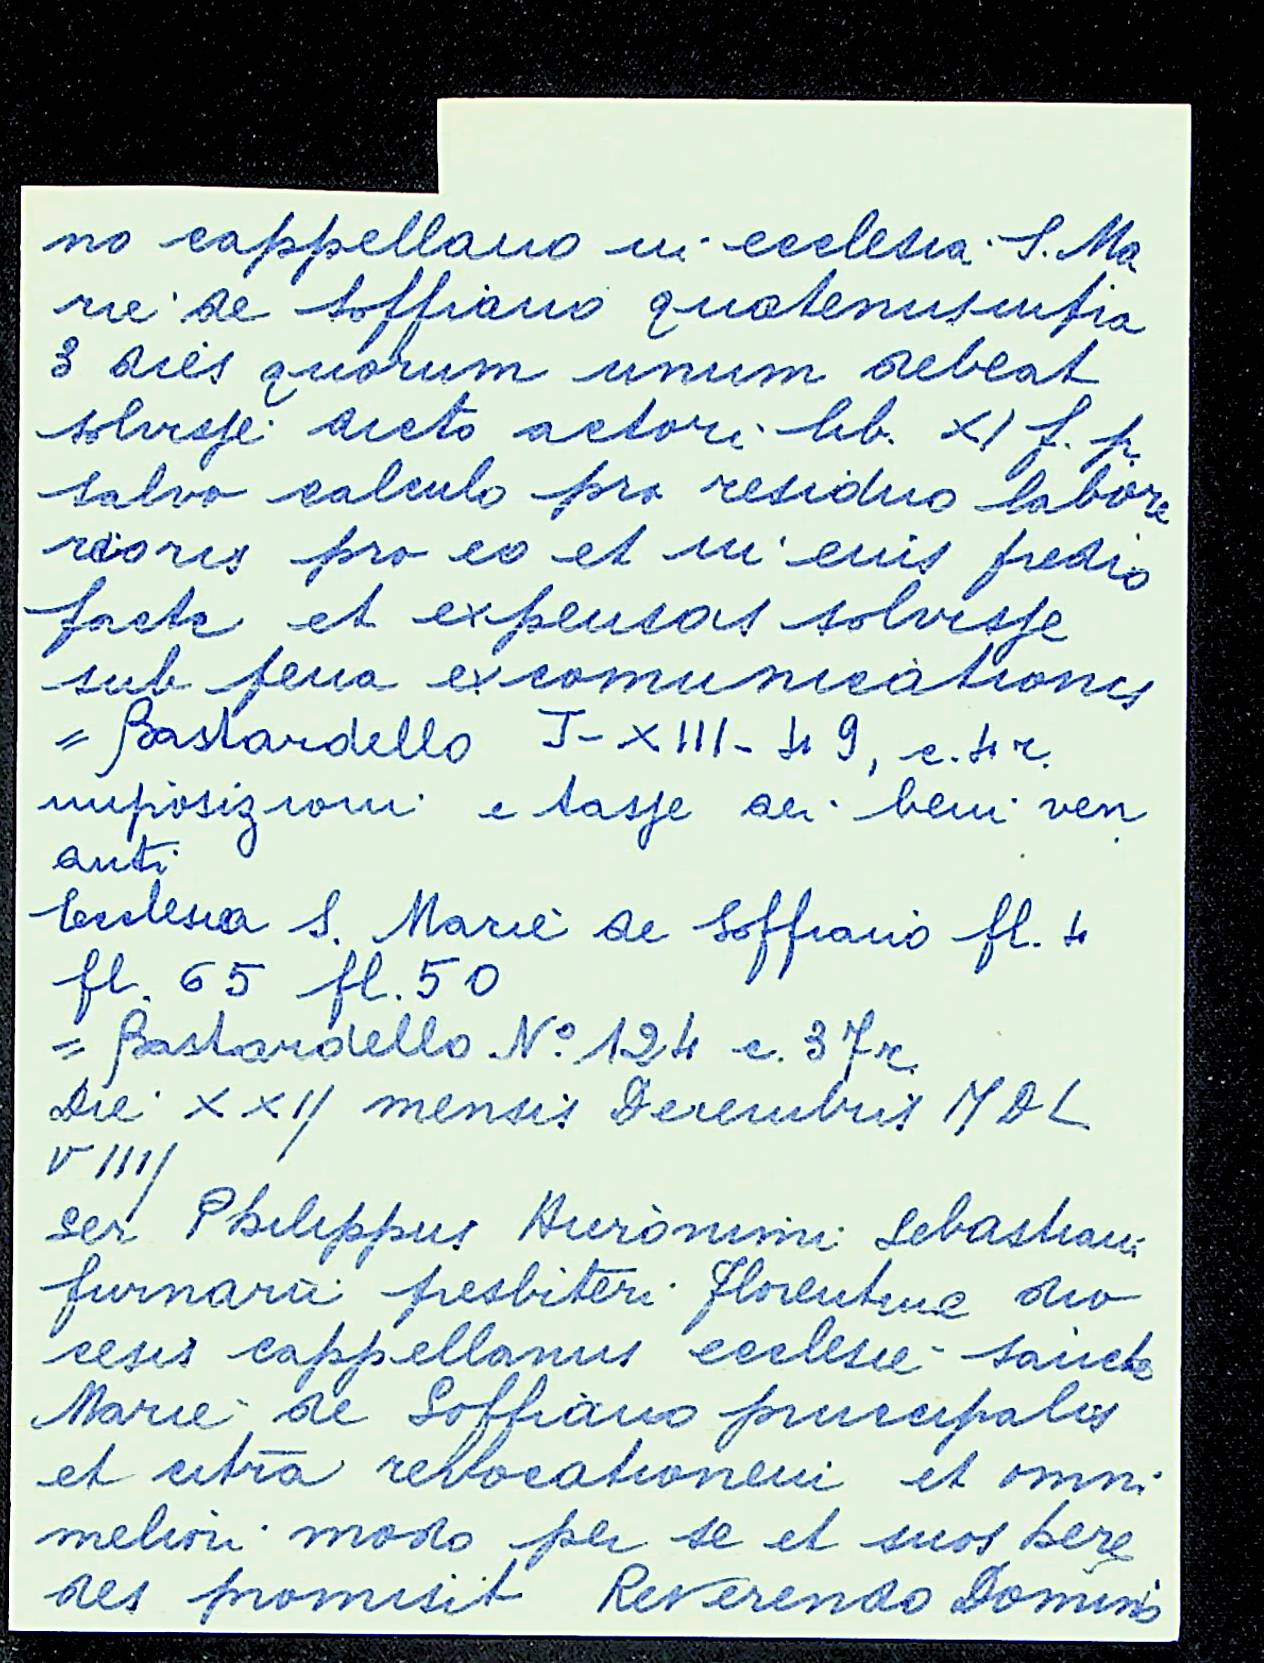 no cappellano in ecclesia S. Ma
rie de Soffiano quatenus infra
3 dies quorum unum debeat
solvisse dicto actori lib. XI f. p.
salvo calculo pro residuo labore
pro eo et in eius predio
facte et expensas solvisse
sub pena excomunicationis
= Bastardello J-XIII-49, c.4r.
imposizioni e tasse dei beni ven
anti
Ecclesia S. Marie de Soffiano fl. 4
fl. 65 fl. 50
= Bastardello N.º 124 c. 37r.
Die XXII mensis Decembris MDL
VIIII
Ser Philippus Hieronimi Sebastiani
furnarii presbiteri Florentine dio
cesis cappellanus ecclesie sancte
Marie de Soffiano principalis
et citra revocationem et omni
meliori modo per se et suos here
des promisit Reverendo Domino